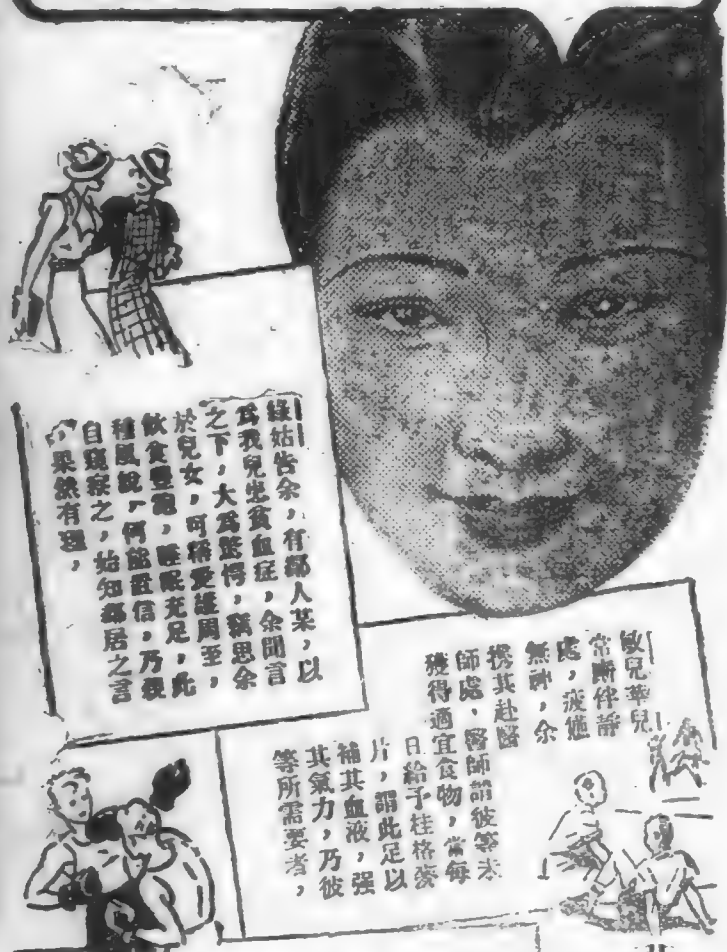 綠姑告余，有鄰人某，以
爲我兒患貧血症，余聞言
之下，大爲驚愕，竊思余
於兒女，可稱愛護周至，
飲食豐麗，睡眠充足，此
種風說，何能置信，乃親
自窺察之，始知鄰居之言
果然有理，
敏兒華兒
常嘶伴靜
處，疲憊
無神，余
携其赴醫
師處，醫師謂彼等未
獲得適宜食物，當每
日給予桂格麥
片，謂此足以
補其血液，强
其氣力，乃彼
等所需要者，